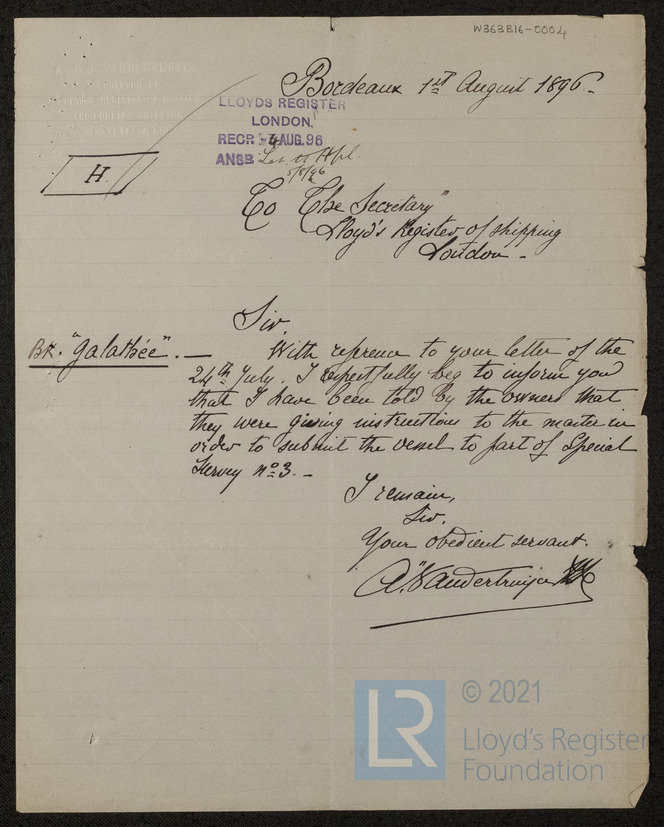 W363B16-0004
Bordeaux 1st August 1896 -
LLOYDS REGISTER
LONDON.
RECD 4 AUG. 96
ANSD
5/8/96
H
To "The Secretary"
Lloyd's Register of Shipping
London -
Sir
Bk. "Galathée". -
With reference to your letter of the
24th July. I respectfully beg to inform you
that I have been told by the owners that
they were giving instructions to the master in
order to submit the vessel to part of Special
Survey no 3. -
I remain,
Sir.
Your obedient servant.
© 2021
LR
Lloyd's Register
Foundation